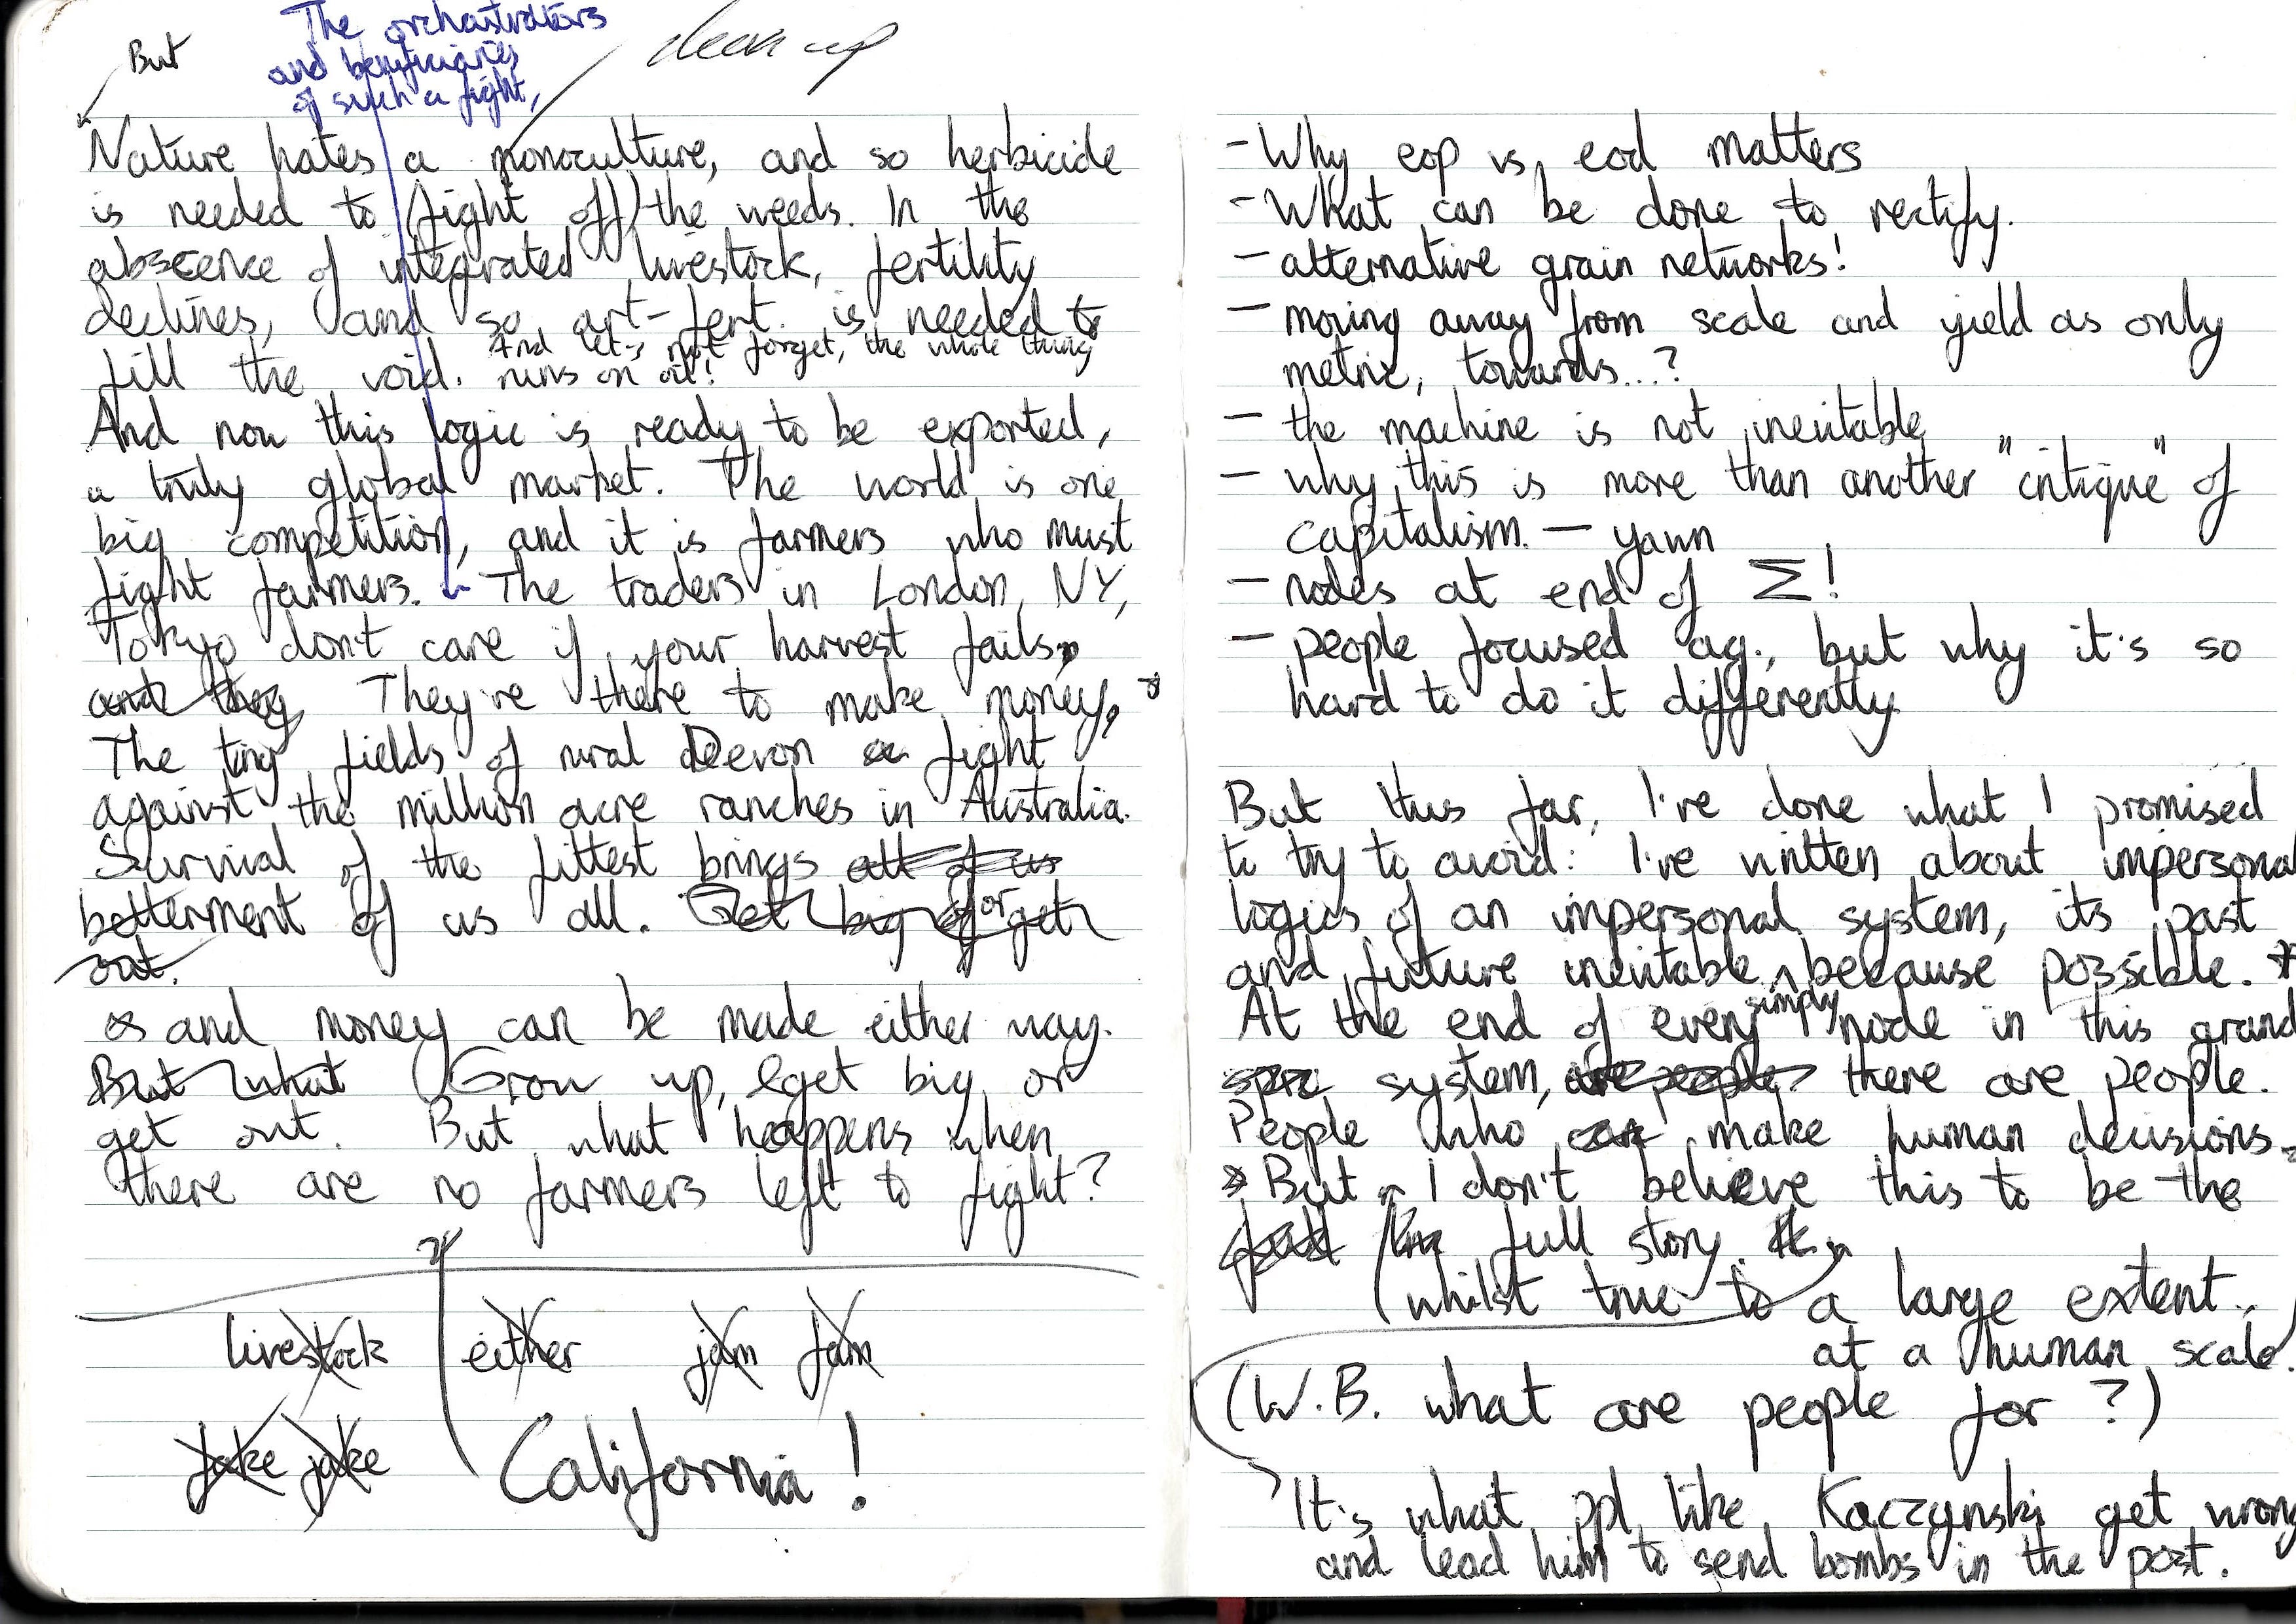 But
The orchastrators
and beneficiaries
of such a fight,
clean up
Nature hates a monoculture, and so herbicide
is needed to (fight off) the weeds. In the
abscence of integrated livestock, fertility
declines, and so art-fert. is needed to
fill the void. And let's not forget, the whole thing
runs on oil!
And now this logic is ready to be exported,
a truly global market. The world is one
big competition, and it is farmers who must
fight farmers. The traders in London, NY,
Tokyo don't care if your harvest fails,
and they They're there to make money,*
The tiny fields of rural Devon fight
against the million acre ranches in Australia.
Survival of the fittest brings all of us
betterment of us all. Get big or get
out.
* and money can be made either way.
But what Grow up, get big or
get out. But what happens when
there are no farmers left to fight?
livestock either jam jam
jake jake California!
- Why eop vs, eod matters
- What can be done to rectify.
- alternative grain networks!
- moving away from scale and yield as only
metric, towards...?
- the machine is not inevitable
- why this is more than another "critique" of
capitalism. - yawn
- nodes at end of Σ!
- people focused ag., but why it's so
hard to do it differently
But thus far, I've done what I promised
to try to avoid: I've written about impersonal
logics of an impersonal system, its past
and future inevitable simply because possible. *
At the end of every node in this grand
system, are people there are people.
People who can make human decisions
* But I don't believe this to be the
full full story.
whilst true to a large extent..
at a human scale.
(W.B. what are people for?)
It's what ppl like Kaczynski get wrong
and lead him to send bombs in the post.